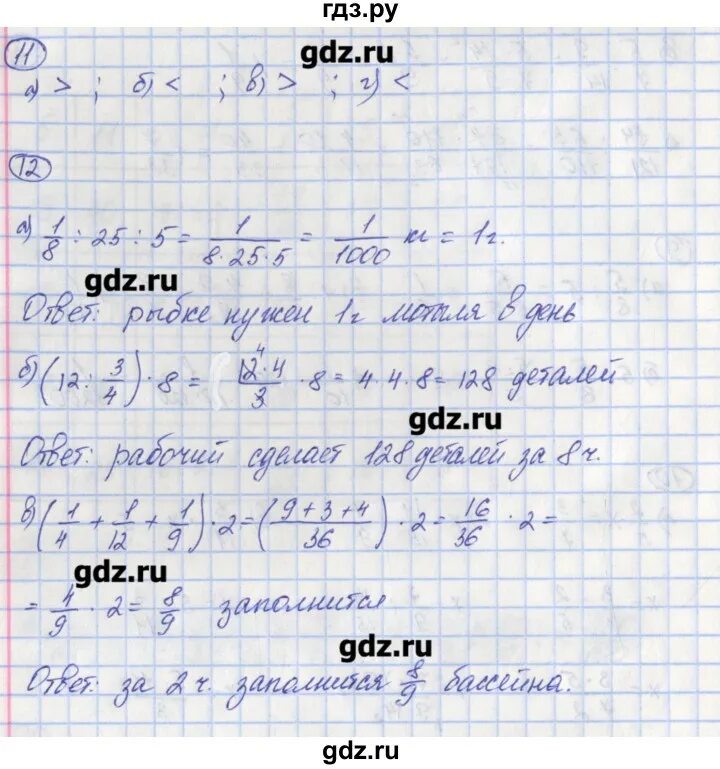 гдз.ру
11
gdz.ru
а) > ; б) < ; в) > ; г) <
12
а) 1/8 : 25 : 5 = 1/(8·25·5) = 1/1000 кг = 1 г.
gdz.ru
Ответ: рыбке нужен 1 г мотыля в день
б) (12 : 3/4) · 8 = (12·4)/3 · 8 = 4·4·8 = 128 деталей
4
gdz.ru
Ответ: рабочий сделает 128 деталей за 8 ч.
в) (1/4 + 1/12 + 1/9) · 2 = ((9+3+4)/36) · 2 = 16/36 · 2 =
gdz.ru
= 4/9 · 2 = 8/9 заполнится
gdz.ru
Ответ: за 2 ч. заполнится 8/9 бассейна.
gdz.ru